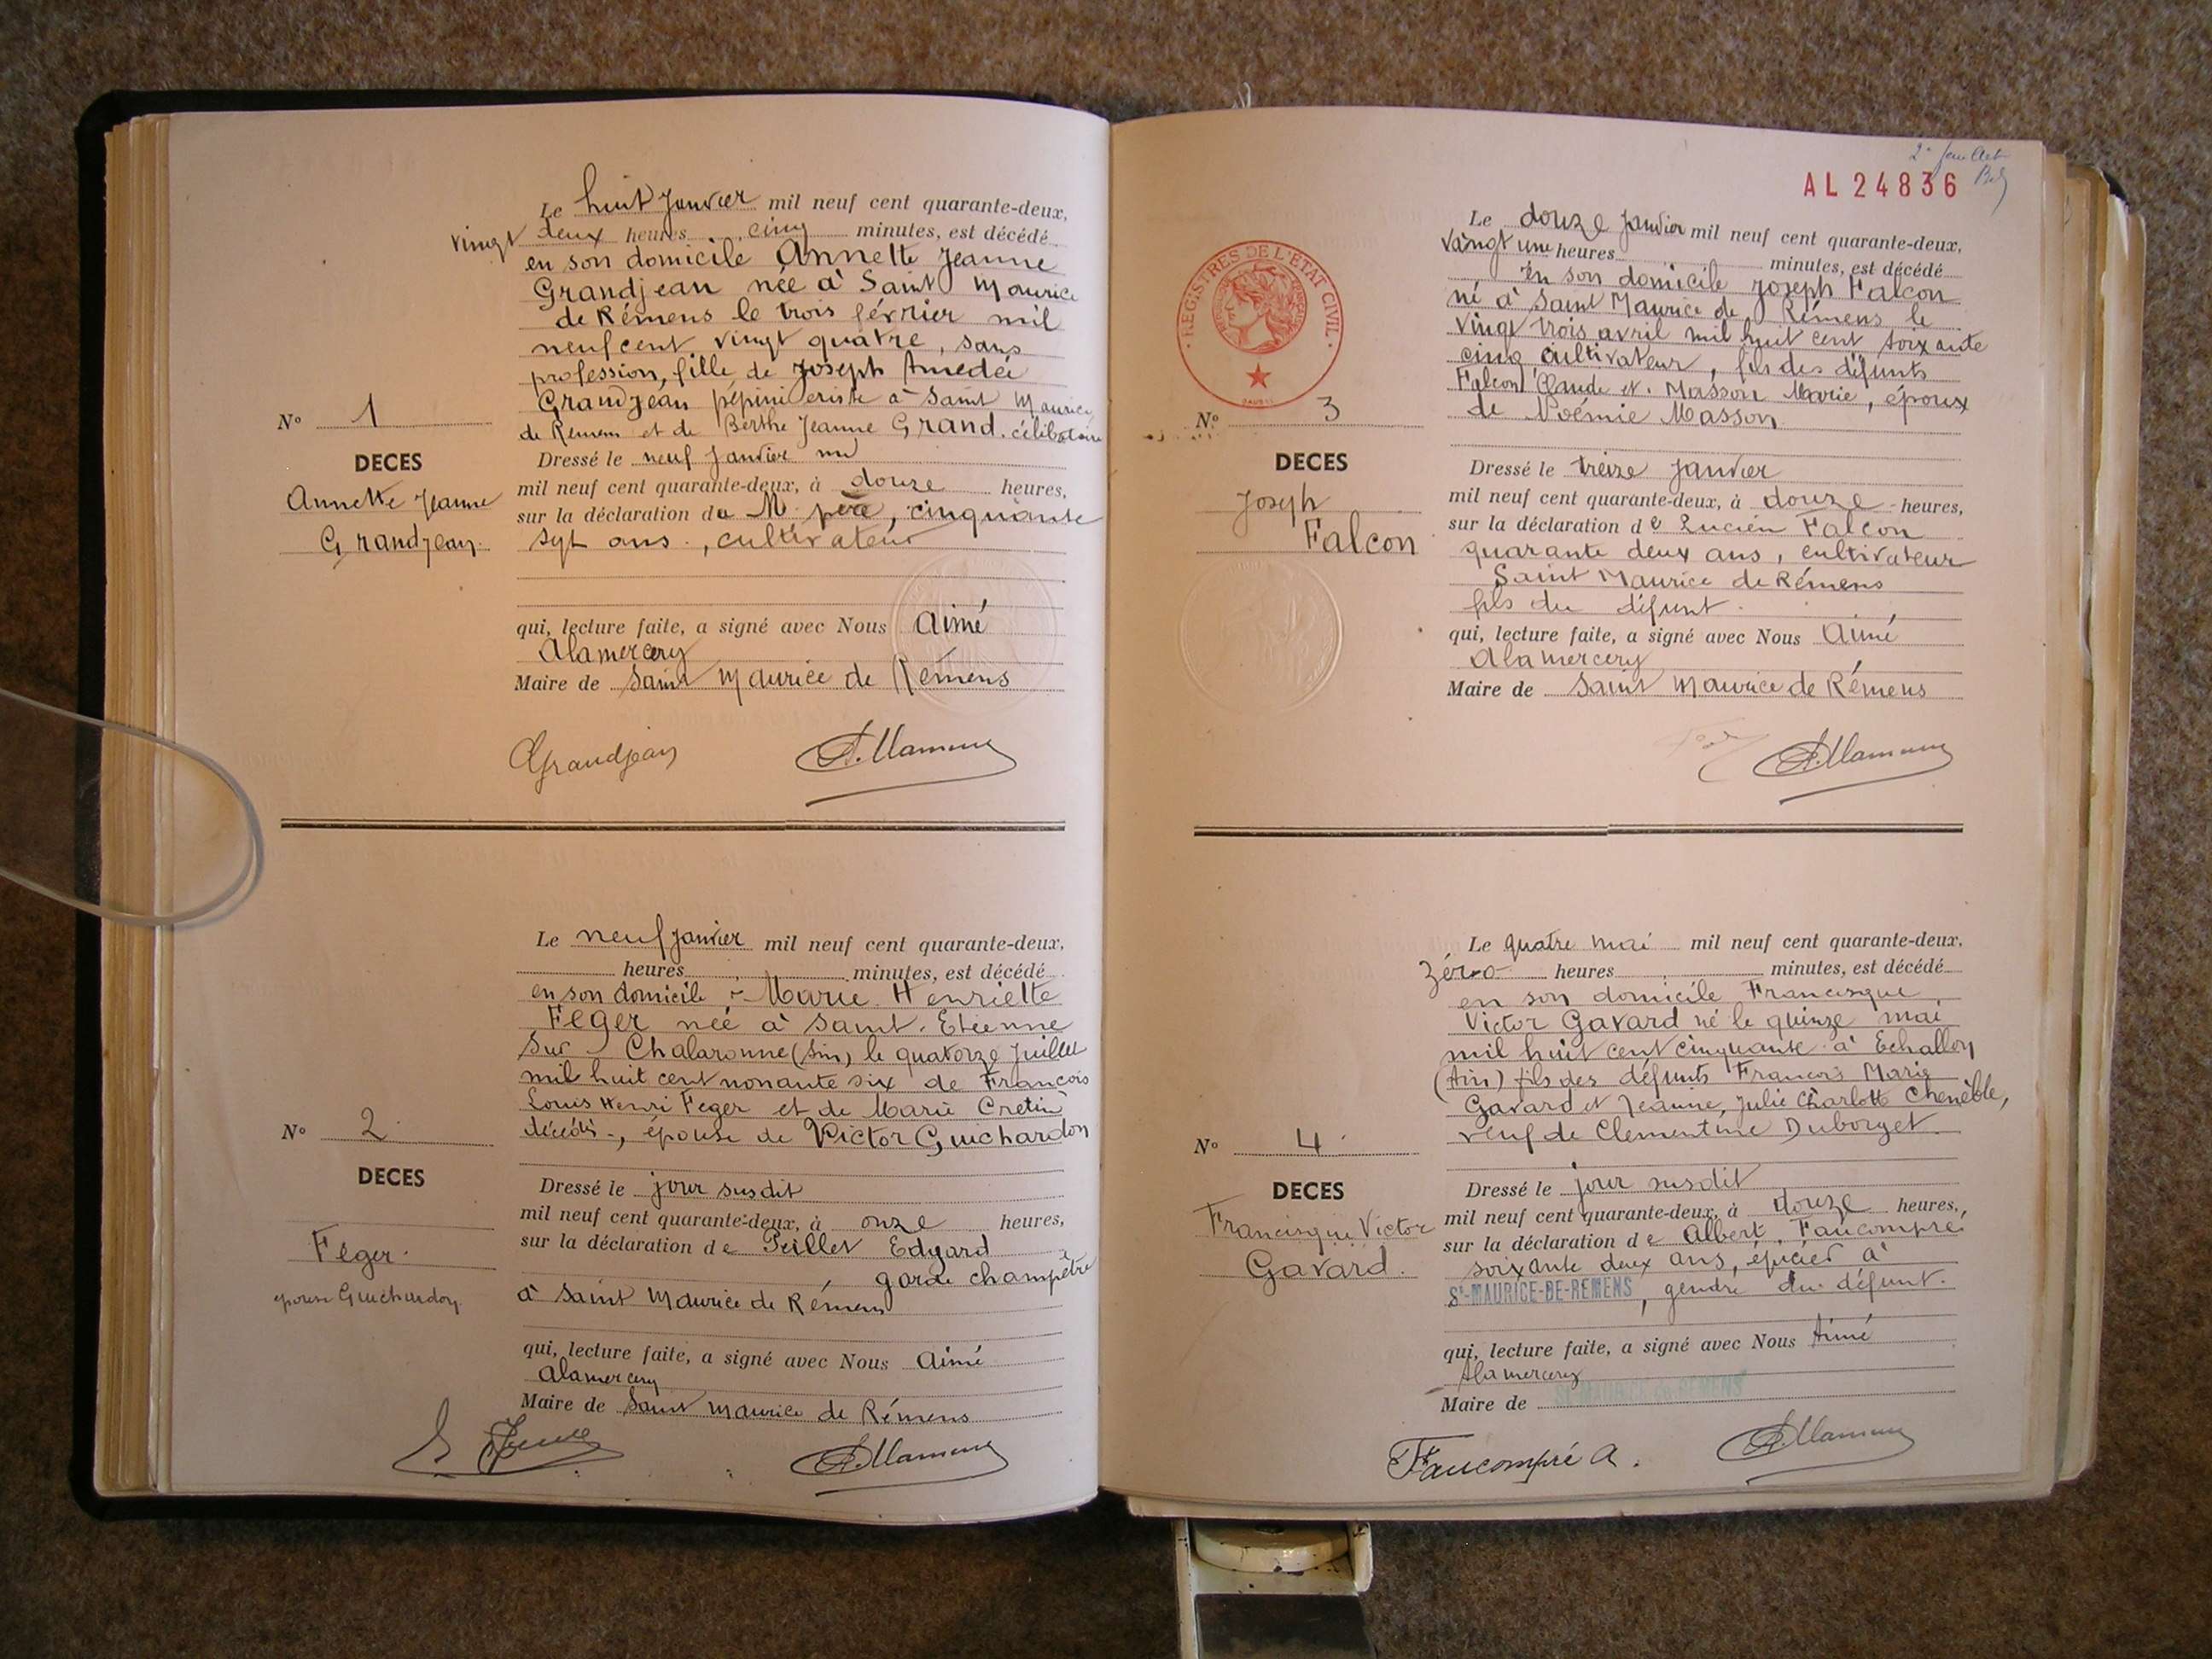 Le huit Janvier mil neuf cent quarante-deux,
vingt deux heures cinq minutes, est décédé
en son domicile Annette Jeanne
Grandjean née à Saint Maurice
de Rémens le trois février mil
neuf cent vingt quatre, sans
profession, fille de Joseph Amedée
Grandjean pépiniériste à Saint Maurice
de Remens et de Berthe Jeanne Grand. célibataire
N° 1
DECES
Annette Jeanne
Grandjean
Dressé le neuf Janvier
mil neuf cent quarante-deux, à douze heures,
sur la déclaration du M. père, cinquante
sept ans, cultivateur
qui, lecture faite, a signé avec Nous Aimé
Alamercery
Maire de Saint Maurice de Rémens
Grandjean
Le neuf Janvier mil neuf cent quarante-deux,
heures minutes, est décédé
en son domicile, Marie Henriette
Feger née à Saint. Etienne
Sur Chalaronne (Ain) le quatorze Juillet
mil huit cent nonante six de François
Louis Henri Feger et de Marie Cretin
décédés, épouse de Victor Guichardon
N° 2
DECES
Féger
épouse Guichardon
Dressé le jour susdit
mil neuf cent quarante-deux, à onze heures,
sur la déclaration de Peillet Edgard
garde champêtre
à Saint Maurice de Rémens
qui, lecture faite, a signé avec Nous Aimé
Alamercery
Maire de Saint Maurice de Rémens
2e feuillet
AL 24836
REGISTRES DE L'ÉTAT CIVIL
Le douze Janvier mil neuf cent quarante-deux,
vingt une heures minutes, est décédé
en son domicile Joseph Falcon
né à Saint Maurice de Rémens le
vingt trois avril mil huit cent soixante
cinq cultivateur, fils des défunts
Falcon Claude et Masson Marie, époux
de Noémie Masson
N° 3
DECES
Joseph
Falcon
Dressé le treize Janvier
mil neuf cent quarante-deux, à douze heures,
sur la déclaration de Lucien Falcon
quarante deux ans, cultivateur
Saint Maurice de Rémens
fils du défunt.
qui, lecture faite, a signé avec Nous Aimé
Alamercery
Maire de Saint Maurice de Rémens
Le quatre mai mil neuf cent quarante-deux,
zéro heures minutes, est décédé
en son domicile Francisque
Victor Gavard né le quinze mai
mil huit cent cinquante à Echallon
(Ain) fils des défunts François Marie
Gavard et Jeanne, Julie Charlotte Chenèble,
veuf de Clementine Duborget
N° 4
DECES
Francisque Victor
Gavard.
Dressé le jour susdit
mil neuf cent quarante-deux, à douze heures,
sur la déclaration de Albert Faucompré
soixante deux ans, épicier à
St-MAURICE-DE-REMENS, gendre du défunt.
qui, lecture faite, a signé avec Nous Aimé
Alamercery
Maire de St-MAURICE-DE-REMENS
Faucompré A.